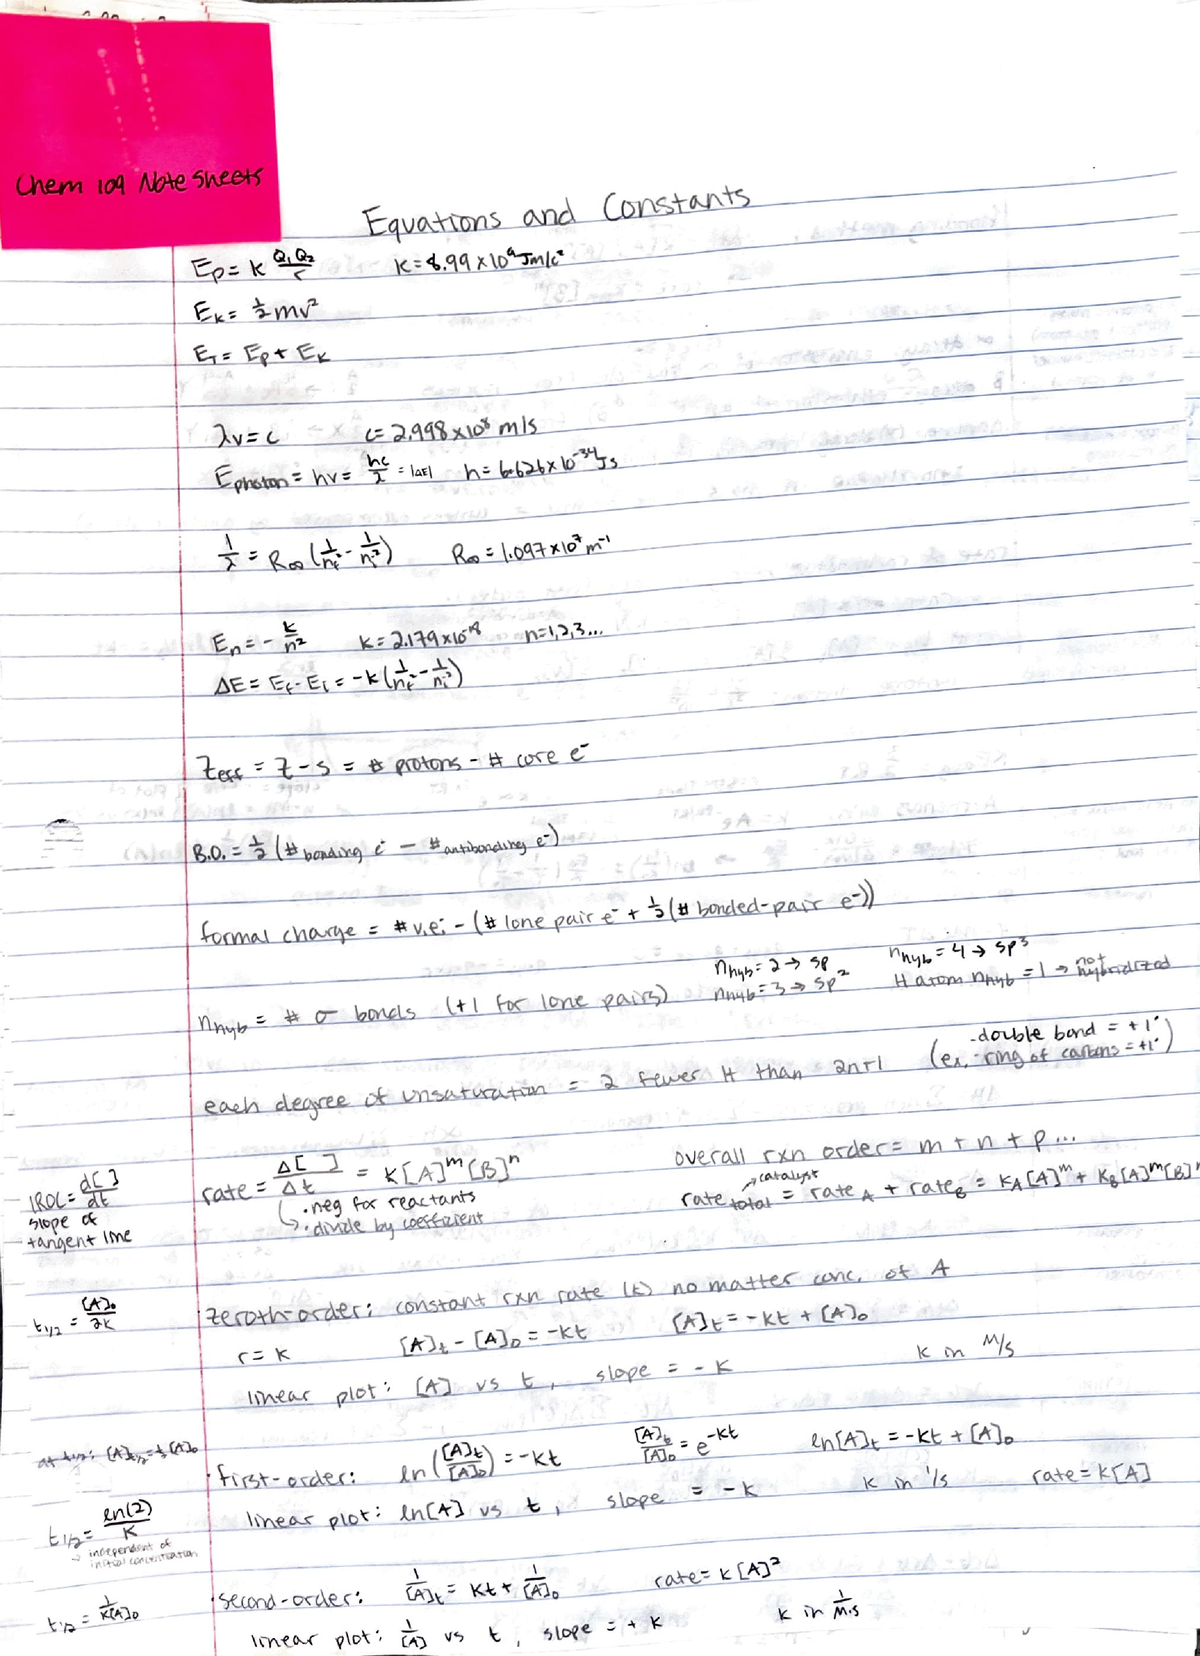 Chem 109 Note Sheets
Equations and Constants
Ep = k Q₁Q₂/r    k = 8.99 x 10⁹ Jm/c²
Ek = ½mv²
ET = Ep + Ek
λν = c    c = 2.998 x 10⁸ m/s
Ephoton = hν = hc/λ = |ΔE|    h = 6.626 x 10⁻³⁴ Js
1/λ = R∞ (1/nf² - 1/ni²)    R∞ = 1.097 x 10⁷ m⁻¹
En = - k/n²    k = 2.179 x 10⁻¹⁸    n = 1,2,3...
ΔE = Ef - Ei = -k (1/nf² - 1/ni²)
Zeff = Z - s = # protons - # core e⁻
B.O. = ½ (# bonding e⁻ - # antibonding e⁻)
formal charge = # v.e. - (# lone pair e⁻ + ½ (# bonded-pair e⁻))
nhyb = 2 → sp    nhyb = 4 → sp³
nhyb = # σ bonds (+1 for lone pairs)    nhyb = 3 → sp²    H atom nhyb = 1 → not hybridized
each degree of unsaturation = 2 fewer H than 2n+1 (ex. -double bond = +1
-ring of carbons = +1)
IROC = d[ ]/dt
slope of
tangent line
rate = Δ[ ]/Δt = k[A]ᵐ[B]ⁿ    overall rxn order = m + n + p...
• neg for reactants
• divide by coefficient
catalyst
rate total = rate A + rate B = kA[A]ᵐ + kB[A]ᵐ[B]ⁿ
t1/2 = [A]₀/2k
• zeroth-order: constant rxn rate (k) no matter conc. of A
r = k    [A]t - [A]₀ = -kt    [A]t = -kt + [A]₀
linear plot: [A] vs t, slope = -k    k in M/s
at t1/2: [A]t1/2 = ½[A]₀
• first-order: ln([A]t/[A]₀) = -kt    [A]t/[A]₀ = e^-kt    ln[A]t = -kt + [A]₀
linear plot: ln[A] vs t, slope = -k    k in 1/s    rate = k[A]
t1/2 = ln(2)/k
→ independent of
initial concentration
t1/2 = 1/k[A]₀
• second-order: 1/[A]t = kt + 1/[A]₀    rate = k[A]²
linear plot: 1/[A] vs t, slope = + k    k in 1/M·s